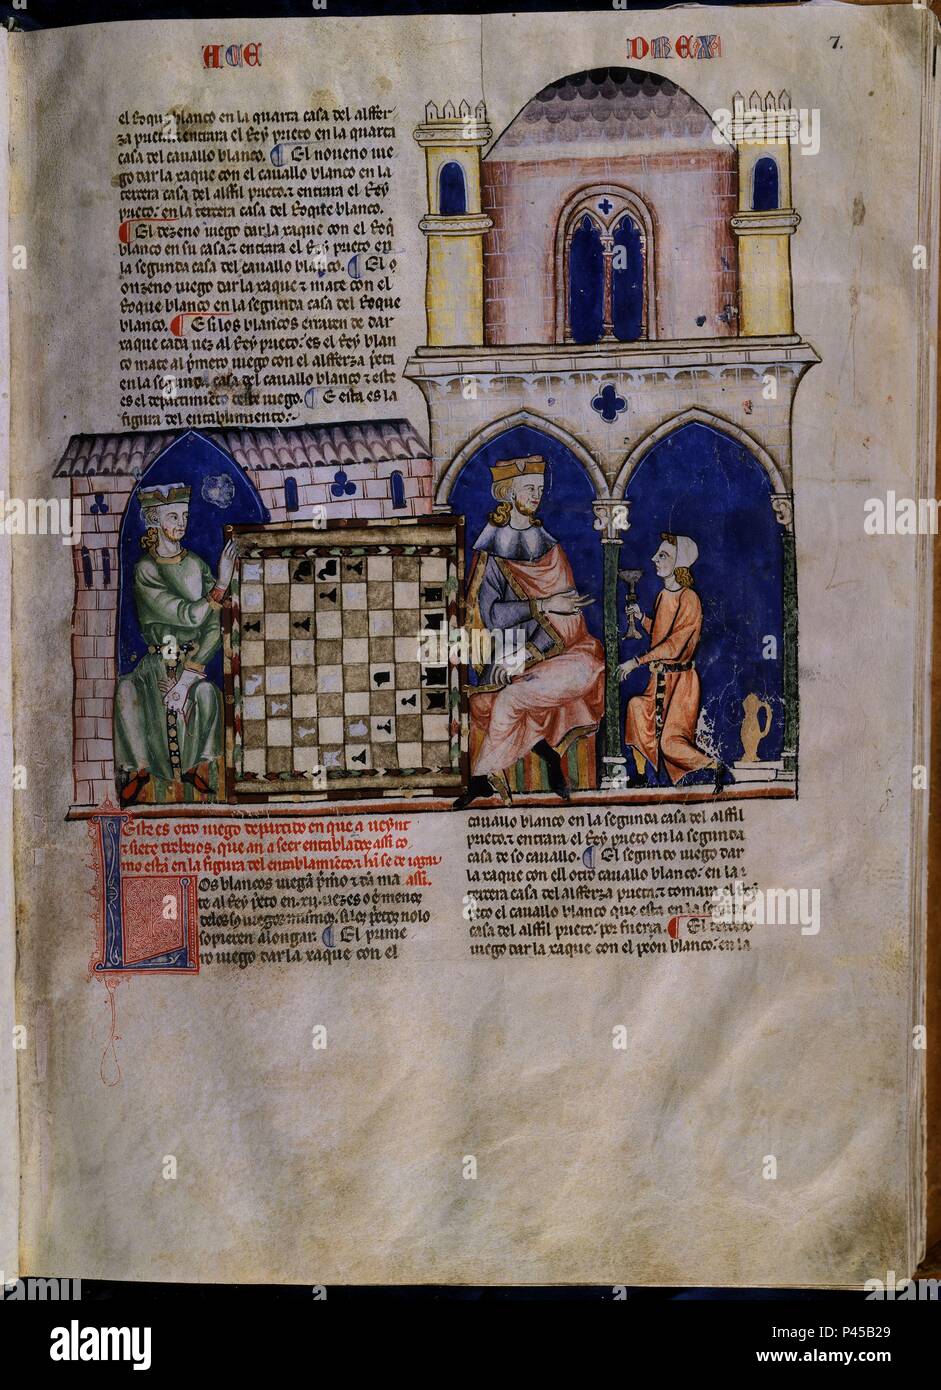 ACE
DREX
7.
el Roque blanco en la quarta casa del alffer-
za prieta. entrara el Rey prieto en la quarta
casa del cauallo blanco. El noueno iue-
go dar la xaque con el cauallo blanco en la
tercera casa del alffil prieto. & entrara el Rey
prieto. en la tercera casa del Roque blanco.
El dezeno iuego dar la xaque con el Roq̃
blanco en su casa. & entrara el Rey prieto en
la segunda casa del cauallo blanco. El o
onzeno iuego dar la xaque & mate con el
Roque blanco en la segunda casa del Roque
blanco. E si los blancos erraren de dar
xaque cada uez al Rey prieto. es el Rey blan
co mate al p̃mero iuego con el alfferza p̃eta
en la segunda casa del cauallo blanco & este
es el departimiento deste iuego. E esta es la
figura del entablamiento.
Este es otro iuego departido en que a ueynt
& siete trebeios, que an a seer entablados assi co-
mo esta en la figura del entablamiento. & hi se de iogar
assi.
Los blancos iuegan p̃mero & dan ma
te al Rey p̃eto en .xii. uezes o en menos
delos sos iuegos mismos. si los prietos nolo
sopieren alongar. El prime
ro iuego dar la xaque con el
cauallo blanco en la segunda casa del alffil
prieto. & entrara el Rey prieto en la segunda
casa de so cauallo. El segundo iuego dar
la xaque con ell otro cauallo blanco. en la
tercera casa del alfferza prieta. & tomara el Rey
p̃eto el cauallo blanco que esta en la segunda
casa del alffil prieto. por fuerza. El tercero
iuego dar la xaque con el peon blanco. en la
alamy
P45B29
www.alamy.com